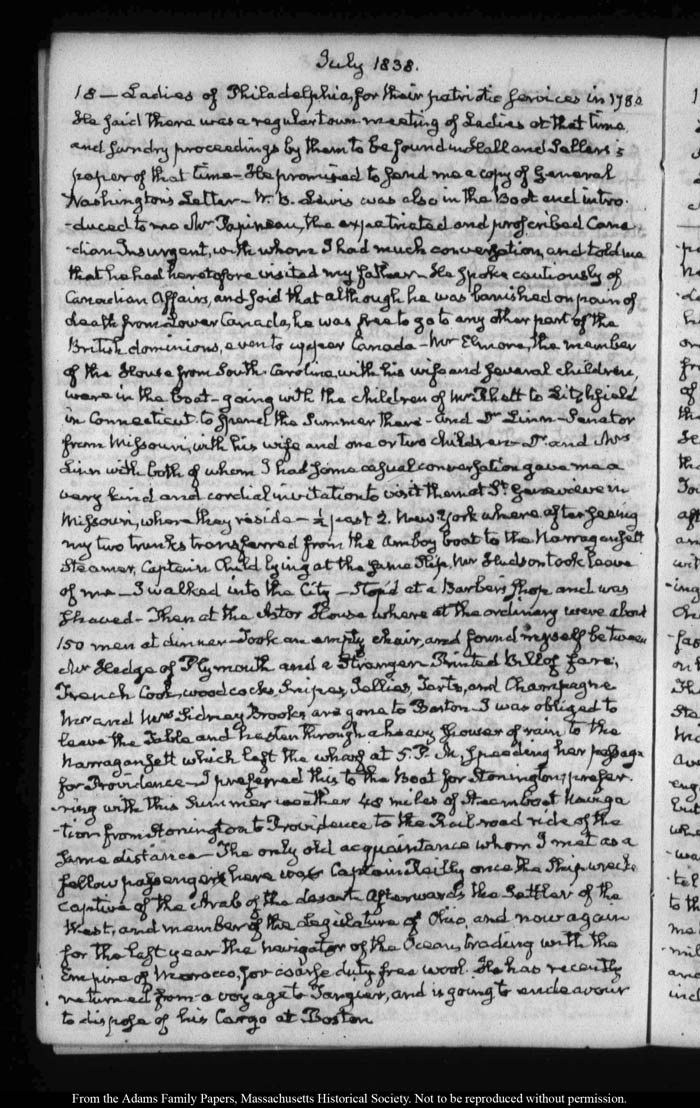 July 1838.
18 — Ladies of Philadelphia, for their patriotic services in 1780
He said there was a regular town meeting of Ladies at that time,
and sundry proceedings by them to be found in Hall and Sellers's
paper of that time — He promised to send me a copy of General
Washington's Letter — W. B. Lewis was also in the Boat and intro-
-duced to me Mr Papineau, the expatriated and proscribed Cana-
-dian Insurgent, with whom I had much conversation, and told me
that he had heretofore visited my father — He spoke cautiously of
Canadian Affairs, and said that although he was banished on pain of
death from Lower Canada, he was free to go to any other part of the
British dominions, even to upper Canada — Mr Elmore, the member
of the House from South-Carolina, with his wife and several children,
were in the boat — going with the children of Mr Rhett to Litchfield
in Connecticut to spend the Summer there — and Dr Linn — Senator
from Missouri, with his wife and one or two children — Dr and Mrs
Linn with both of whom I had some casual conversation gave me a
very kind and cordial invitation to visit them at St Genevieve in
Missouri, where they reside — ½ past 2. New York where after seeing
my two trunks transferred from the Amboy boat to the Narragansett
Steamer, Captain Child lying at the same Slip, Mr Hudson took leave
of me — I walked into the City — Stop'd at a Barber's shop and was
Shaved — Then at the Astor House where at the ordinary were about
150 men at dinner — Took an empty chair, and found myself between
Mr Hedge of Plymouth and a Stranger — Printed Bill of fare,
French Cook, woodcocks, Snipes, Jellies, Tarts, and Champagne
Mr and Mrs Sidney Brooks are gone to Boston. I was obliged to
leave the Table and hasten through a heavy shower of rain to the
Narragansett which left the wharf at 5. P. M. speeding her passage
for Providence — I preferred this to the Boat for Stonington, prefer-
-ring with this Summer weather 48 miles of Steamboat naviga
-tion from Stonington to Providence to the Railroad ride of the
same distance — The only old acquaintance whom I met as a
fellow passenger here was Captain Reilly once the Shipwreck'd
captive of the Arab of the desart, afterwards the Settler of the
West, and member of the Legislature of Ohio, and now again
for the last year the navigator of the Ocean, trading with the
Empire of Morocco, for coarse duty free wool. He has recently
returned from a voyage to Tangier, and is going to endeavour
to dispose of his Cargo at Boston
From the Adams Family Papers, Massachusetts Historical Society. Not to be reproduced without permission.